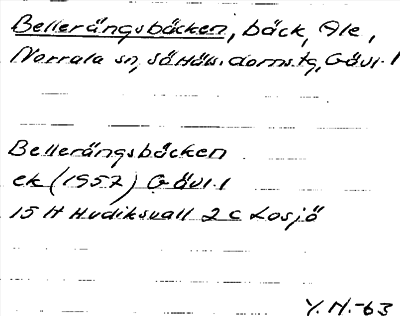 Bellerängsbäcken, bäck, Ale,
Norrala sn, SöHäls. doms.tg, Gävl. l
Bellerängsbäcken
ek (1957) Gävl. l
15 H Hudiksvall 2 c Losjö
Y. H.-63